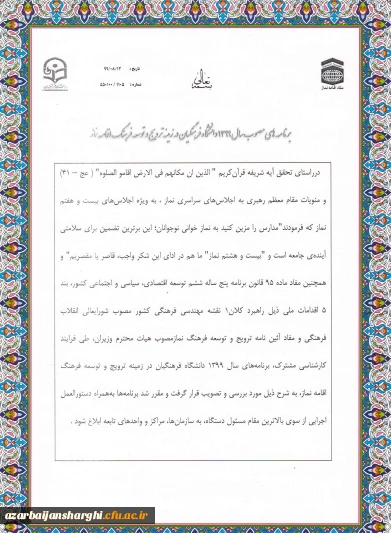 تاریخ: ۹۹/۰۸/۱۳
بسمه تعالی
شماره: ۵۵۰۱۰۰/۲۰۵
ستاد اقامه نماز
برنامه‌های مصوب سال ۱۳۹۹ دانشگاه فرهنگیان در زمینه ترویج و توسعه فرهنگ اقامه نماز
درراستای تحقق آیه شریفه قرآن‌کریم " الذین ان مکانهم فی الارض اقامو الصلوه" ( حج – ۴۱)
و منویات مقام معظم رهبری به اجلاس‌های سراسری نماز ، به ویژه اجلاس‌های بیست و هفتم
نماز که فرمودند"مدارس را مزین کنید به نماز خوانی نوجوانان؛ این برترین تضمین برای سلامتی
آینده‌ی جامعه است و "بیست و هشتم نماز" ما هم در ادای این شکر واجب، قاصر یا مقصریم" و
همچنین مفاد ماده ۹۵ قانون برنامه پنج ساله ششم توسعه اقتصادی، سیاسی و اجتماعی کشور، بند
۵ اقدامات ملی ذیل راهبرد کلان۱ نقشه مهندسی فرهنگی کشور مصوب شورایعالی انقلاب
فرهنگی و مفاد آئین نامه ترویج و توسعه فرهنگ نمازمصوب هیات محترم وزیران، طی فرایند
کارشناسی مشترک، برنامه‌های سال ۱۳۹۹ دانشگاه فرهنگیان در زمینه ترویج و توسعه فرهنگ
اقامه نماز، به شرح ذیل مورد بررسی و تصویب قرار گرفت و مقرر شد برنامه‌ها به‌همراه دستورالعمل
اجرایی از سوی بالاترین مقام مسئول دستگاه، به سازمان‌ها، مراکز و واحدهای تابعه ابلاغ شود .
azarbaijansharghi.cfu.ac.ir